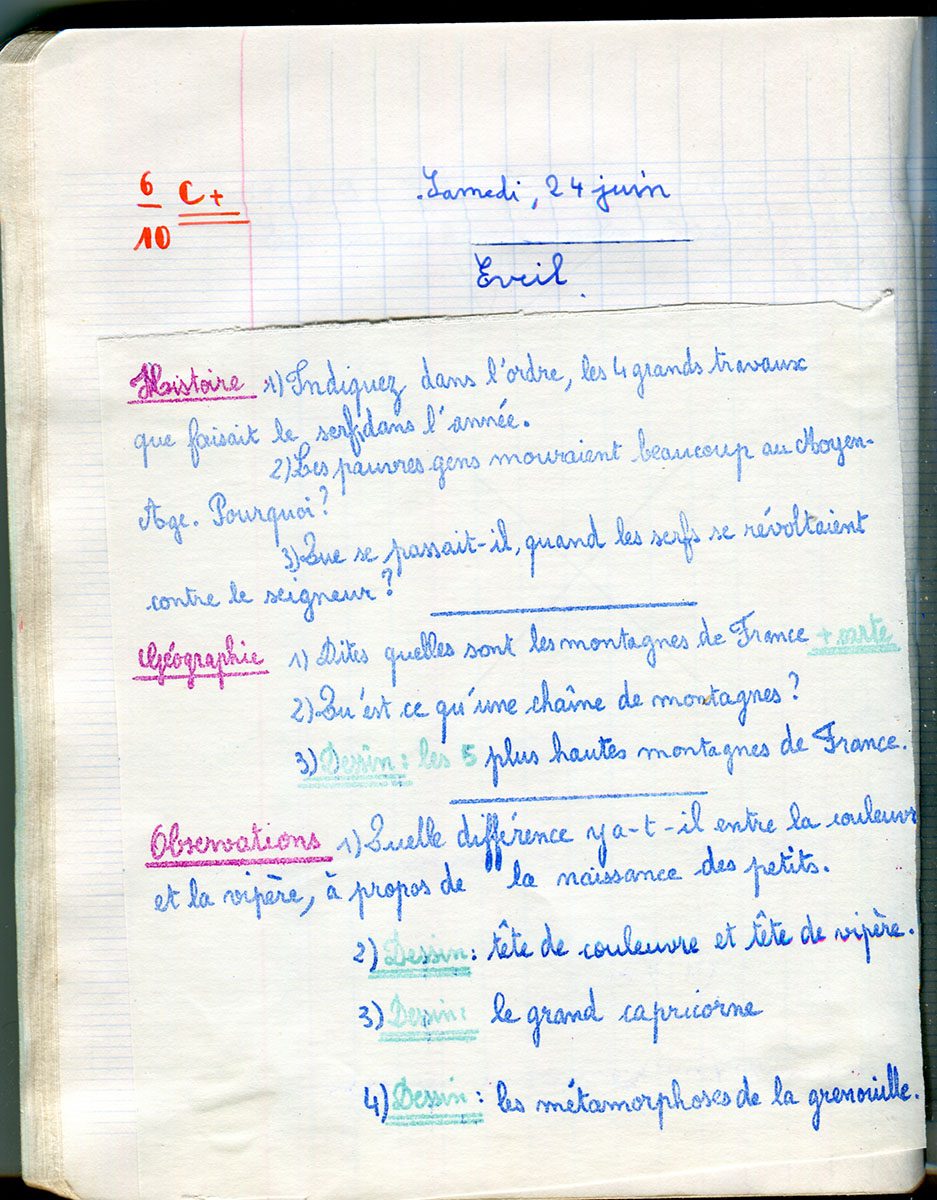 6
10
C+
Samedi, 24 juin
Eveil
Histoire 1) Indiquez dans l'ordre, les 4 grands travaux
que faisait le serf, dans l'année.
2) Les pauvres gens mouraient beaucoup au Moyen-
Age. Pourquoi?
3) Que se passait-il, quand les serfs se révoltaient
contre le seigneur?
Géographie 1) Dites quelles sont les montagnes de France + carte
2) Qu'est ce qu'une chaîne de montagnes?
3) Dessin: les 5 plus hautes montagnes de France.
Observations 1) Quelle différence y a-t-il entre la couleuvr
et la vipère, à propos de la naissance des petits.
2) Dessin: tête de couleuvre et tête de vipère.
3) Dessin: le grand capricorne
4) Dessin: les métamorphoses de la grenouille.